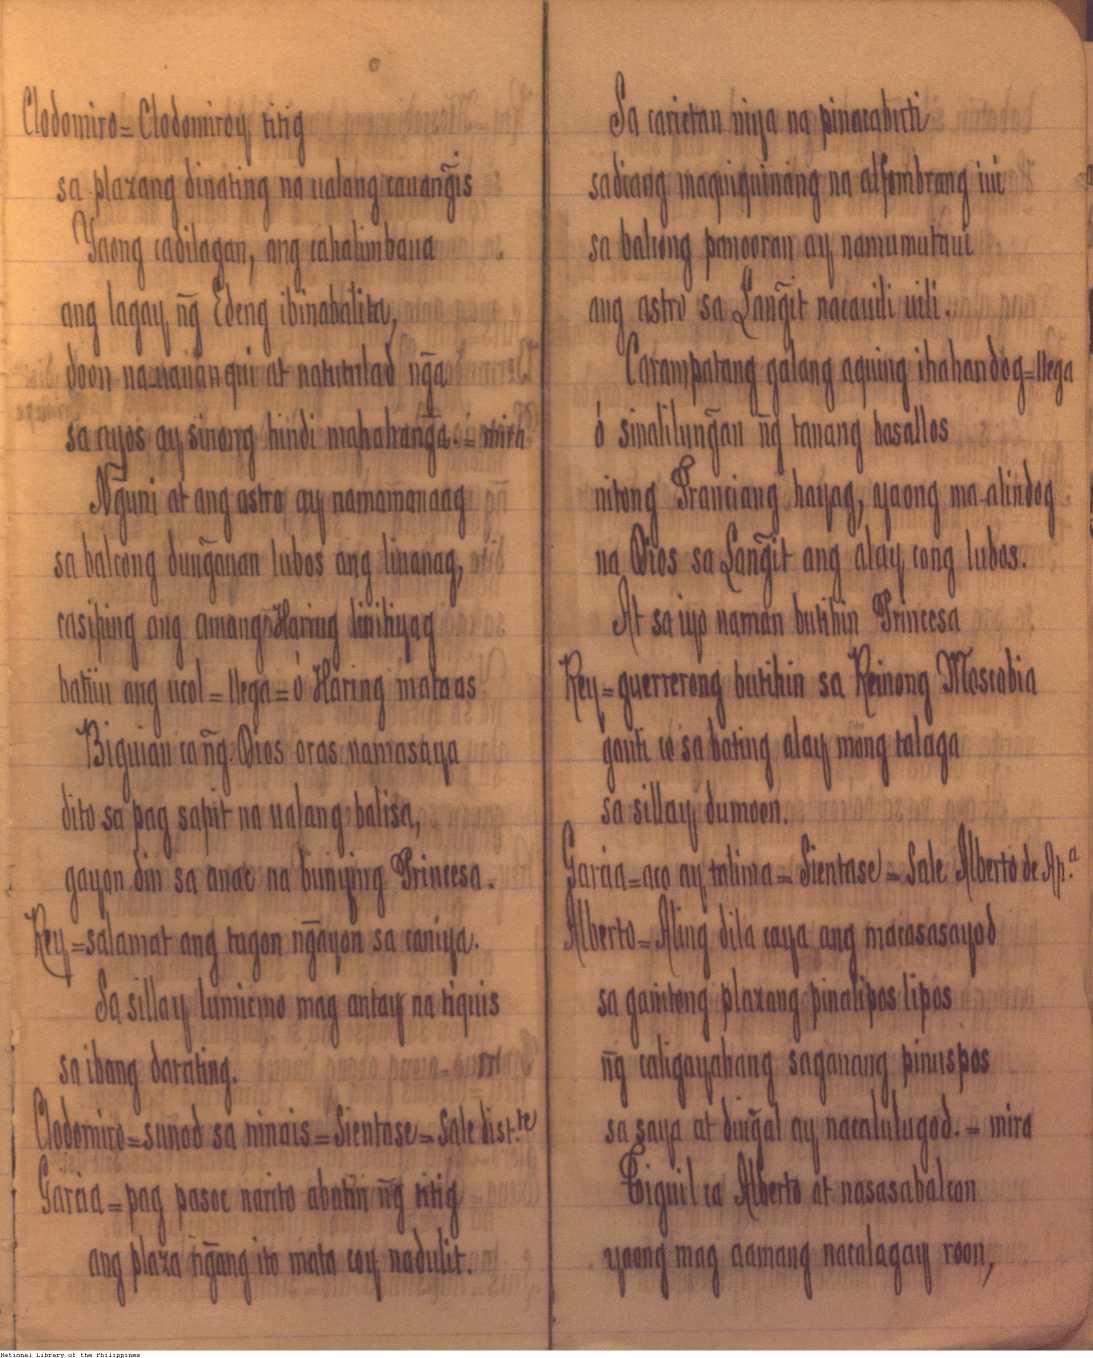 Clodomiro = Clodomiroy titig
sa plazang dinating na ualang cauang̃is
Yaong cadilagan, ang cahalimbaua
ang lagay ñg Edeng ibinabalita,
doon na uauanqui at natutulad ng̃a
sa cuyos ay sinong hindi mahahang̃a. = mira
Ng̃uni at ang astro ay namamanaag
sa balcong dung̃auan lubos ang liuanag,
casiping ang amang Haring liniliyag
batiin ang ucol = llega = ó Haring mataas
Biguian ca ñg Dios oras na masaya
dito sa pag sapit na ualang balisa,
gayon din sa anac na buniying Princesa.
Rey = salamat ang tugon ng̃ayon sa caniya.
Sa sillay lumicmo mag antay na tiquis
sa ibang darating.
Clodomiro = sunod sa ninais = Sientase = Sale dist.te
Garcia = pag pasoc narito abatin ñg titig
ang plaza ng̃ang ito mata coy nadulit.
Sa carictan niya na pinacabuti
sadiang maguiguinang na alfombrang iui
sa balcong panooran ay namumutaui
ang astro sa Lang̃it nacauili uili.
Carampatang galang aquing ihahandog = llega
ó sinalilung̃an ñg tanang basallos
nitong Franciang hayag, yaong ma-alindog
na Dios sa Lang̃it ang alay cong lubos.
At sa iyo naman butihin Princesa
Rey = guerrerong butihin sa Reinong Moscobia
ganti co sa bating alay mong talaga
sa sillay dumoon.
Garcia = aco ay talima = Sientase = Sale Alberto de Ap.a
Alberto = Aling dila caya ang macasasayod
sa ganitong plazang pinalipos lipos
ñg caligayahang saganang pinuspos
sa saya at ding̃al ay nacalulugod. = mira
Tiguil ca Alberto at nasasabalcon
yaong mag aamang nacalagay roon,
National Library of the Philippines